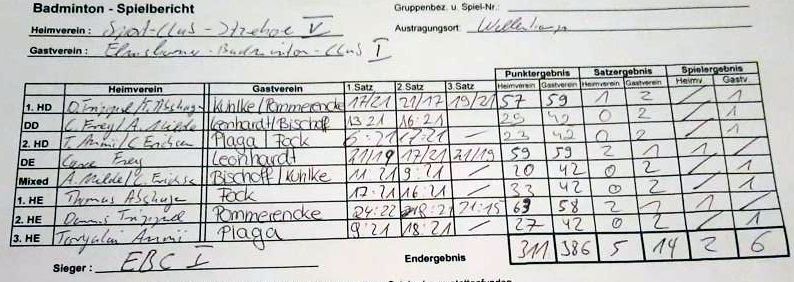 Badminton - Spielbericht
Gruppenbez. u. Spiel-Nr.:
Heimverein : Sport-Club-Itzehoe V
Austragungsort:
Gastverein : Elmshorner-Badminton-Club I
Punktergebnis Satzergebnis Spielergebnis
Heimverein Gastverein 1.Satz 2.Satz 3.Satz Heimverein Gastverein Heimverein Gastverein Heimv. Gastv.
1. HD Kuhlke/Pommerencke 17/21 21/17 19/21 57 59 1 2 / 1
DD C. Frey/A. Lenhardt/Bischoff 13 21 16:21 29 42 0 2 / 1
2. HD Plaga / Fock 6:21 17:21 — 23 42 0 2 / 1
DE Frey Leonhardt 21/19 17/21 21/19 59 59 2 1 1 /
Mixed Bischoff / Kuhlke 11:21 9:21 / 20 42 0 2 / 1
1. HE Thomas Fock 17:21 16:21 / 33 42 0 2 / 1
2. HE Dennis Pommerencke 24:22 18:21 21:15 63 58 2 1 1 /
3. HE Plaga 9:21 18:21 — 27 42 0 2 / 1
311 386 5 14 2 6
Sieger : EBC I
Endergebnis